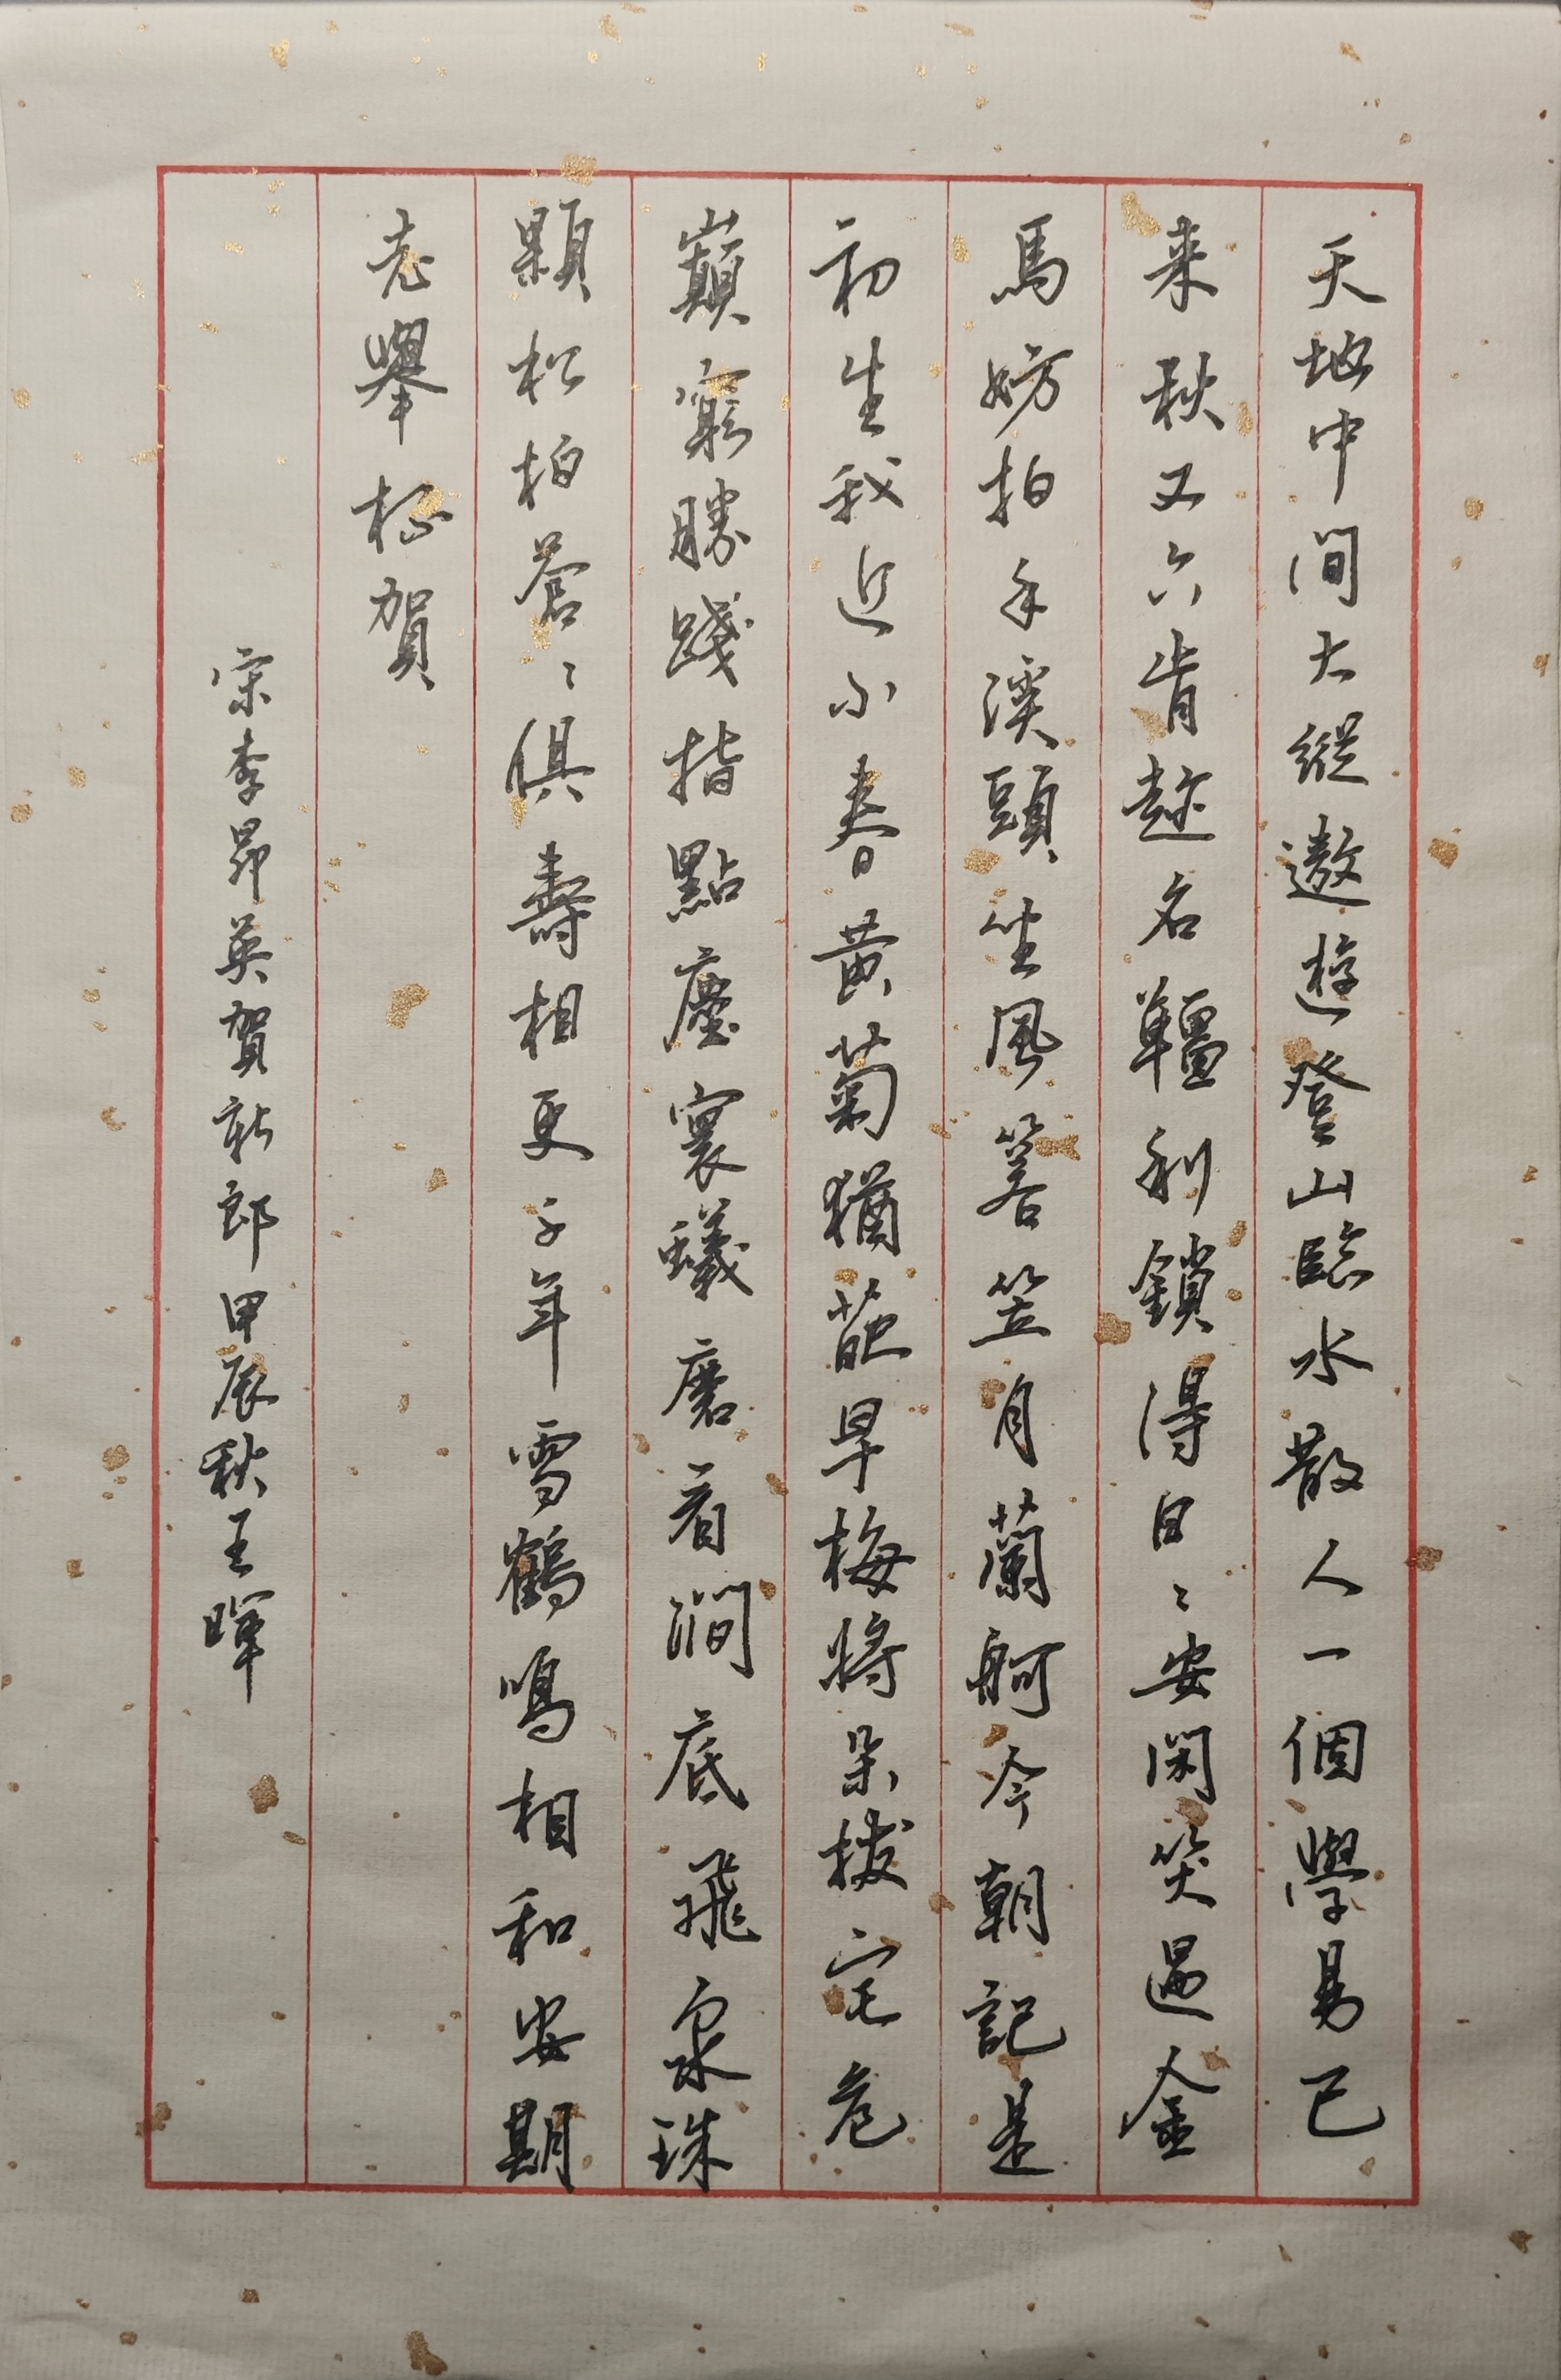 天地中間大縱遨遊登山臨水散人一個學易已
来秋又六肯趂名韁利鎖得日〻安閑笑過金
馬妨拍手溪頭坐風箬笠月蘭舸今朝記是
初生我近小春黄菊猶葩早梅將朵拔宅危
巔窮勝踐指點塵寰蟻磨看澗底飛泉珠
顆松柏蒼〻俱壽相更千年雪鶴鳴相和安期
老舉桮賀
宋李昴英賀新郎甲辰秋王暉